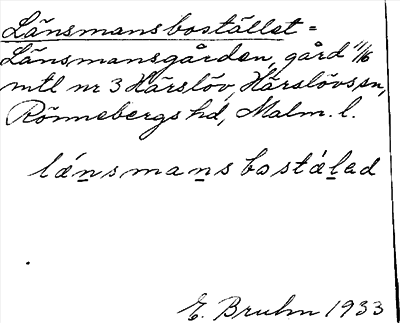 Länsmansbostället =
Länsmansgården, gård 11/16
mtl nr 3 Härslöv, Härslövs sn,
Rönnebergs hd, Malm. l.
lánsmans bostálad
E. Bruhn 1933